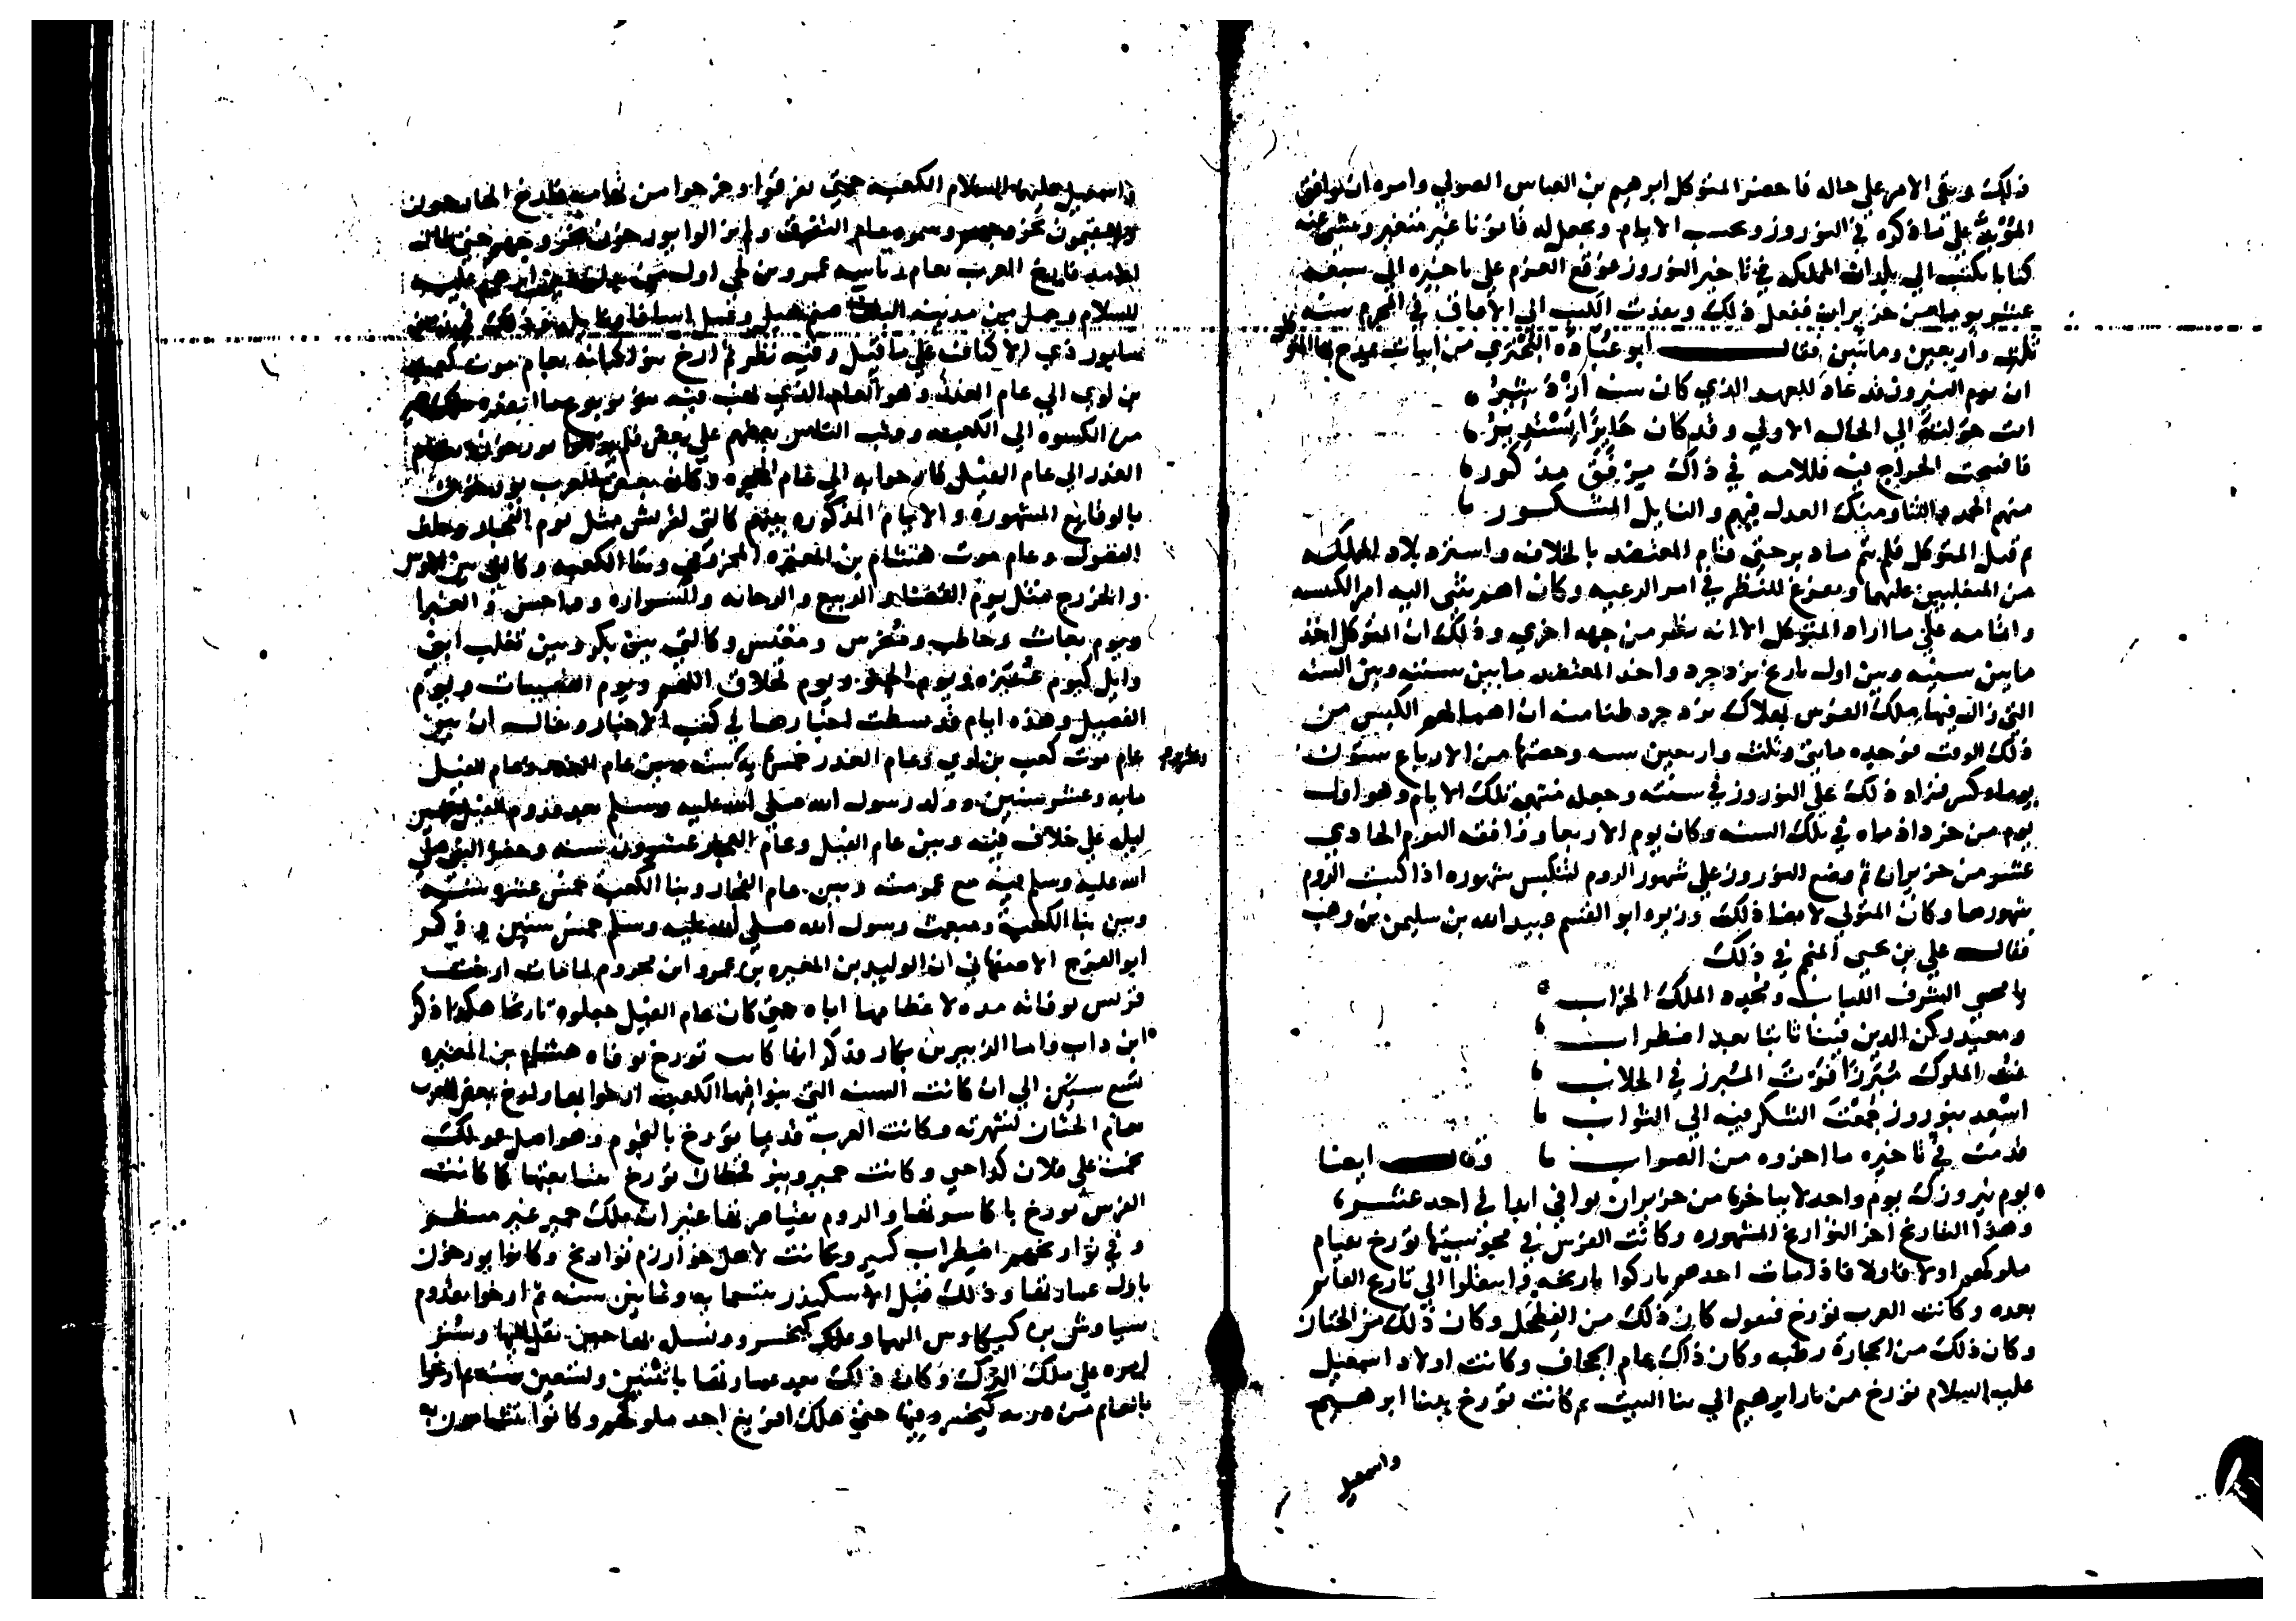 ذلك وبقي الامر علي حاله فاحضر المتوكل ابرهيم بن العباس الصولي وامره ان يوافق
المؤبد علي ما ذكره في النوروز وبحسب الايام ويجعل له قانونا غير متغير وينشي عنه
كتابا يكتب الي بلدان المملكه في تاخير النوروز فوقع العزم علي تاخيره الي سبعه
عشر يوما من حزيران ففعل ذلك ونفذت الكتب الي الافاق في المحرم سنه
ثلث واربعين ومايتين فقال ابو عباده البحتري من ابيات يمدح بها المتوكل
ان يوم النيروز قد عاد للعهد الذي كان سنه اردشير
انت حولته الي الحاله الاولي وقد كان حايرا يستدير
فافتتحت الخراج فيه فللامه في ذاك مرفق مذكور
منهم الحمد والثنا ومنك العدل فيهم والنايل المشكور
ثم قتل المتوكل فلم يتم ما دبر حتي قام المعتضد بالخلافه واسترد بلاد المملكه
من المتغلبين عليها وتفرغ للنظر في امر الرعيه وكان اهم شي اليه امر الكبسه
وامامه علي ما اراد المتوكل الا انه نظر من جهه اخري وذلك ان المتوكل اخذ
ما بين سنته وبين اول تاريخ يزدجرد واخذ المعتضد ما بين سنته وبين السنه
التي زال فيها ملك الفرس بهلاك يزدجرد ظنا منه ان اهمالهم الكبس من
ذلك الوقت فوجده مايتي وثلث واربعين سنه وحصتها من الارباع ستون
يوما وكسر فزاد ذلك علي النوروز في سنته وجعل منتهي تلك الايام وهو اول
يوم من خرداذ ماه في تلك السنه وكان يوم الاربعا ووافقه اليوم الحادي
عشر من حزيران ثم وضع النوروز علي شهور الروم لتكبس شهوره اذا كبست الروم
شهورها وكان المتولي لامضا ذلك وزيره ابو القسم عبيد الله بن سليمن بن وهب
فقال علي بن يحيي المنجم في ذلك
يا محيي الشرف اللباب ومجدد الملك الخراب
ومعيد ركن الدين فينا ثابتا بعد اضطراب
فت الملوك مبرزا فوت المبرز في الحلاب
اسعد بنوروز جمعت الشكر فيه الي الثواب
قدمت في تاخيره ما اخروه من الصواب وقال ايضا
يوم نيروزك يوم واحد لا يتاخر من حزيران يوافي ابدا في احد عشر
وهذا التاريخ اخر التواريخ المشهوره وكانت الفرس في مجوسيتها تورخ بقيام
ملوكهم اولا فاولا فاذا مات احدهم تركوا تاريخه وانتقلوا الي تاريخ القايم
بعده وكانت العرب تورخ فتقول كان ذلك من الفطحل وكان ذلك من الخنان
وكان ذلك من الحجاره رطبه وكان ذاك عام الجحاف وكانت اولاد اسمعيل
عليه السلام تورخ من نار ابرهيم الي بنا البيت ثم كانت تورخ ببنا ابرهيم
واسمعيل
واسمعيل عليهما السلام الكعبه حتي تفرقوا وخرجوا من تهامه فارخ الخارجون
والمقيمون بخروجهم وسموه عام التفرق ولم يزالوا يورخون بخروجهم حتي
تاريخ العرب بعام رياسه عمرو بن لحي اول من بدل دين ابرهيم عليه
السلام وحمل من مدينه البلقا صنم هبل وعمل اسافا ونايله وذلك في زمن
سابور ذي الاكتاف علي ما قيل وفيه نظر ثم ارخ بنو كنانه بعام موت كعب
بن لوي الي عام الغدر وهو العام الذي نهب فيه بنو يربوع ما انفذه ملك حمير
من الكسوه الي الكعبه ووثب الناس بعضهم علي بعض فلم يزالوا يورخون بعام
الغدر الي عام الفيل فارخوا به الي عام الهجره وكان بعض العرب يورخون
بالوقايع المشهوره والايام المذكوره بينهم كالتي لقريش مثل يوم الفجار وحلف
الفضول وعام موت هشام بن المغيره المخزومي وبنا الكعبه وكالتي بين الاوس
والخزرج مثل يوم الفضا والربيع والرحابه والسراره وداحس والغبرا
ويوم بعاث وحاطب ومضرس ومعبس وكالتي بين بكر وبين تغلب ابني
وايل كيوم عنيزه ويوم الحنو ويوم تحلاق اللمم ويوم القصيبات ويوم
الفصيل وهذه ايام قد بسطت اخبارها في كتب الاخبار وقال ان بين
عام موت كعب بن لوي وعام الغدر خمس مايه سنه وبين عام الغدر وعام الفيل
مايه وعشر سنين وولد رسول الله صلي الله عليه وسلم بعد قدوم الفيل بخمسين
ليله علي خلاف فيه وبين عام الفيل وعام الفجار عشرون سنه وحضر النبي صلي
الله عليه وسلم فيه مع عمومته وبين عام الفجار وبنا الكعبه خمس عشر سنه
وبين بنا الكعبه ومبعث رسول الله صلي الله عليه وسلم خمس سنين وذكر
ابو الفرج الاصفهاني ان الوليد بن المغيره بن عمرو ابن مخزوم لما مات ارخت
قريش بوفاته مده لاعظامها اياه حتي كان عام الفيل فجعلوه تاريخا هكذا ذكر
ابن داب واما الزبير بن بكار فذكر انها كانت تورخ بوفاه هشام بن المغيره
تسع سنين الي ان كانت السنه التي بنوا فيها الكعبه ارخوا بها وارخ بعض العرب
بعام الخنان لشهرته وكانت العرب قديما تورخ بالنجوم وهو اصل قولك
نجمت علي فلان كذا حتي وكانت حمير وبنو قحطان تورخ بتبابعتها كما كانت
الفرس تورخ باكاسرتها والروم بقياصرتها غير ان ملك حمير غير منتظم
وفي تواريخهم اضطراب كبير وكانت لاهل خوارزم تواريخ وكانوا يورخون
باول عمارتها وذلك قبل الاسكندر بتسع مايه وثمانين سنه ثم ارخوا بقدوم
سياوش بن كيكاوس اليها وملك كيخسرو ونسل بها حين نقل اليها وسير
امره علي ملك الترك وكان ذلك بعد عمارتها باثنتين وتسعين سنه ثم ارخوا
بالقايم من ذريه كيخسرو فيها حتي هلك افريغ احد ملوكهم وكانوا يتشامون به